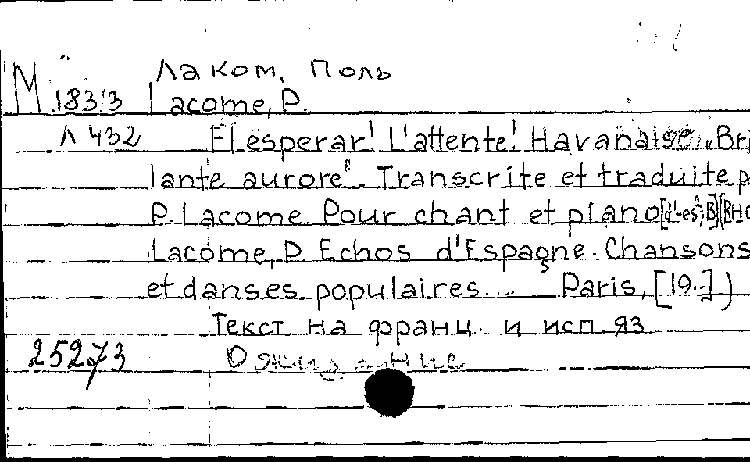 Лаком, Поль
M 183.3 Lacome, P.
Л 432 El esperar! L'attente! Havanaise „Bri
lante aurore". Transcrite et traduite p
P. Lacome Pour chant et piano [d'-es', B]
Lacome, P Echos d'Espagne. Chansons
et danses populaires... Paris, [19..].)
Текст на франц. и исп. яз
25273